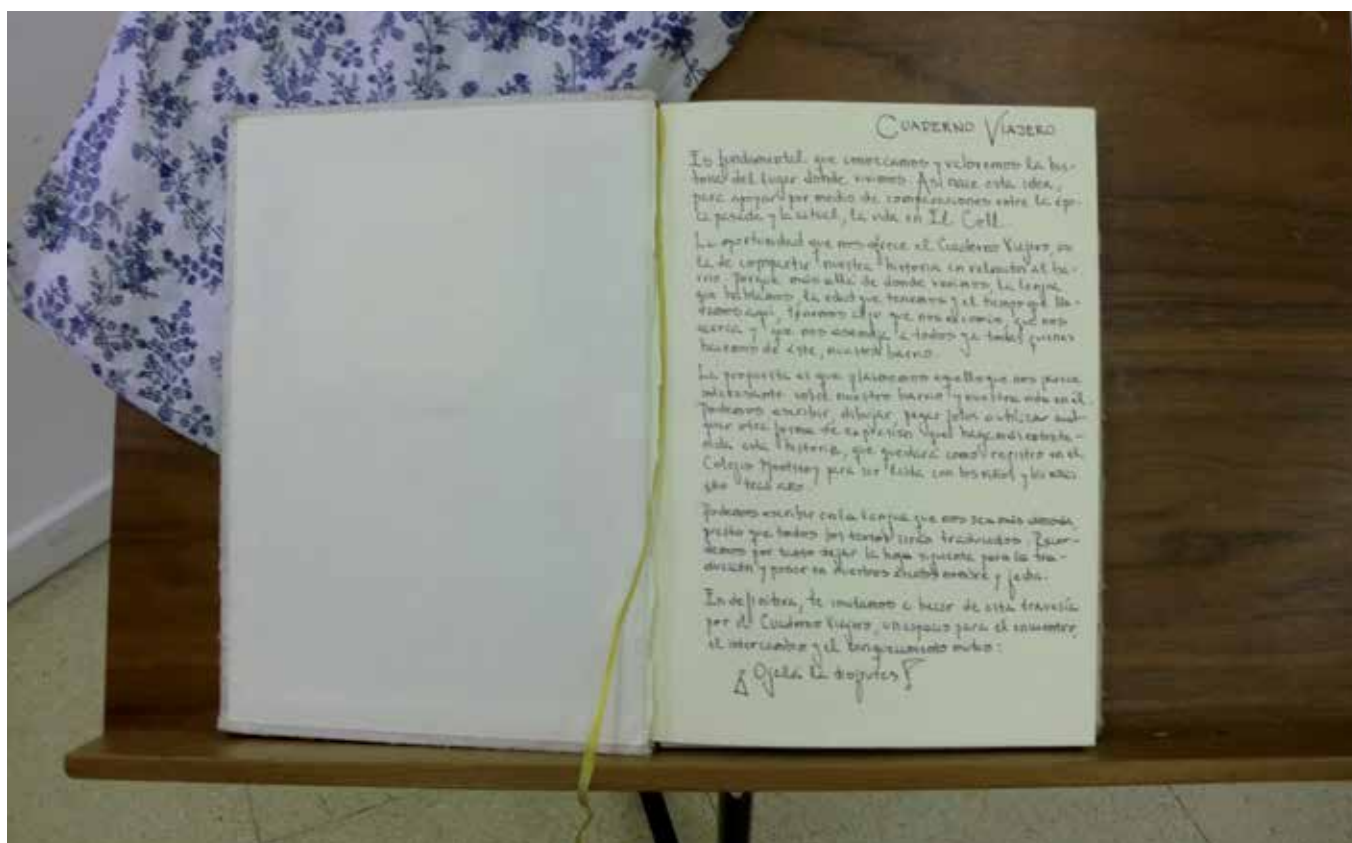 CUADERNO VIAJERO
Es fundamental que conozcamos y valoremos la his-
toria del lugar donde vivimos. Así nace esta idea,
para apoyar por medio de comparaciones entre la épo-
ca pasada y la actual, la vida en El Coll.
La oportunidad que nos ofrece el Cuaderno Viajero, es
la de compartir nuestra historia en relación al ba-
rrio. Porque más allá de donde venimos, la lengua
que hablamos, la edad que tenemos y el tiempo que lle-
vamos aquí, tenemos algo que nos es común, que nos
acerca y que nos asemeja a todos y a todas quienes
hacemos de éste, nuestro barrio.
La propuesta es que plasmemos aquello que nos parece
interesante sobre nuestro barrio y nuestra vida en él.
Podemos escribir, dibujar, pegar fotos o utilizar cual-
quier otra forma de expresión que haga más entrete-
nida esta historia, que quedará como registro en el
Colegio para ser leída con los niños y las niñas
año tras año.
Podemos escribir en la lengua que nos sea más cómoda,
puesto que todos los textos serán traducidos. Recor-
demos por tanto dejar la hoja siguiente para la tra-
ducción y poner en nuestros escritos nombre y fecha.
En definitiva, te invitamos a hacer de esta travesía
por el Cuaderno Viajero, un espacio para el encuentro,
el intercambio y el enriquecimiento mutuo:
¡Ojalá la disfrutes!